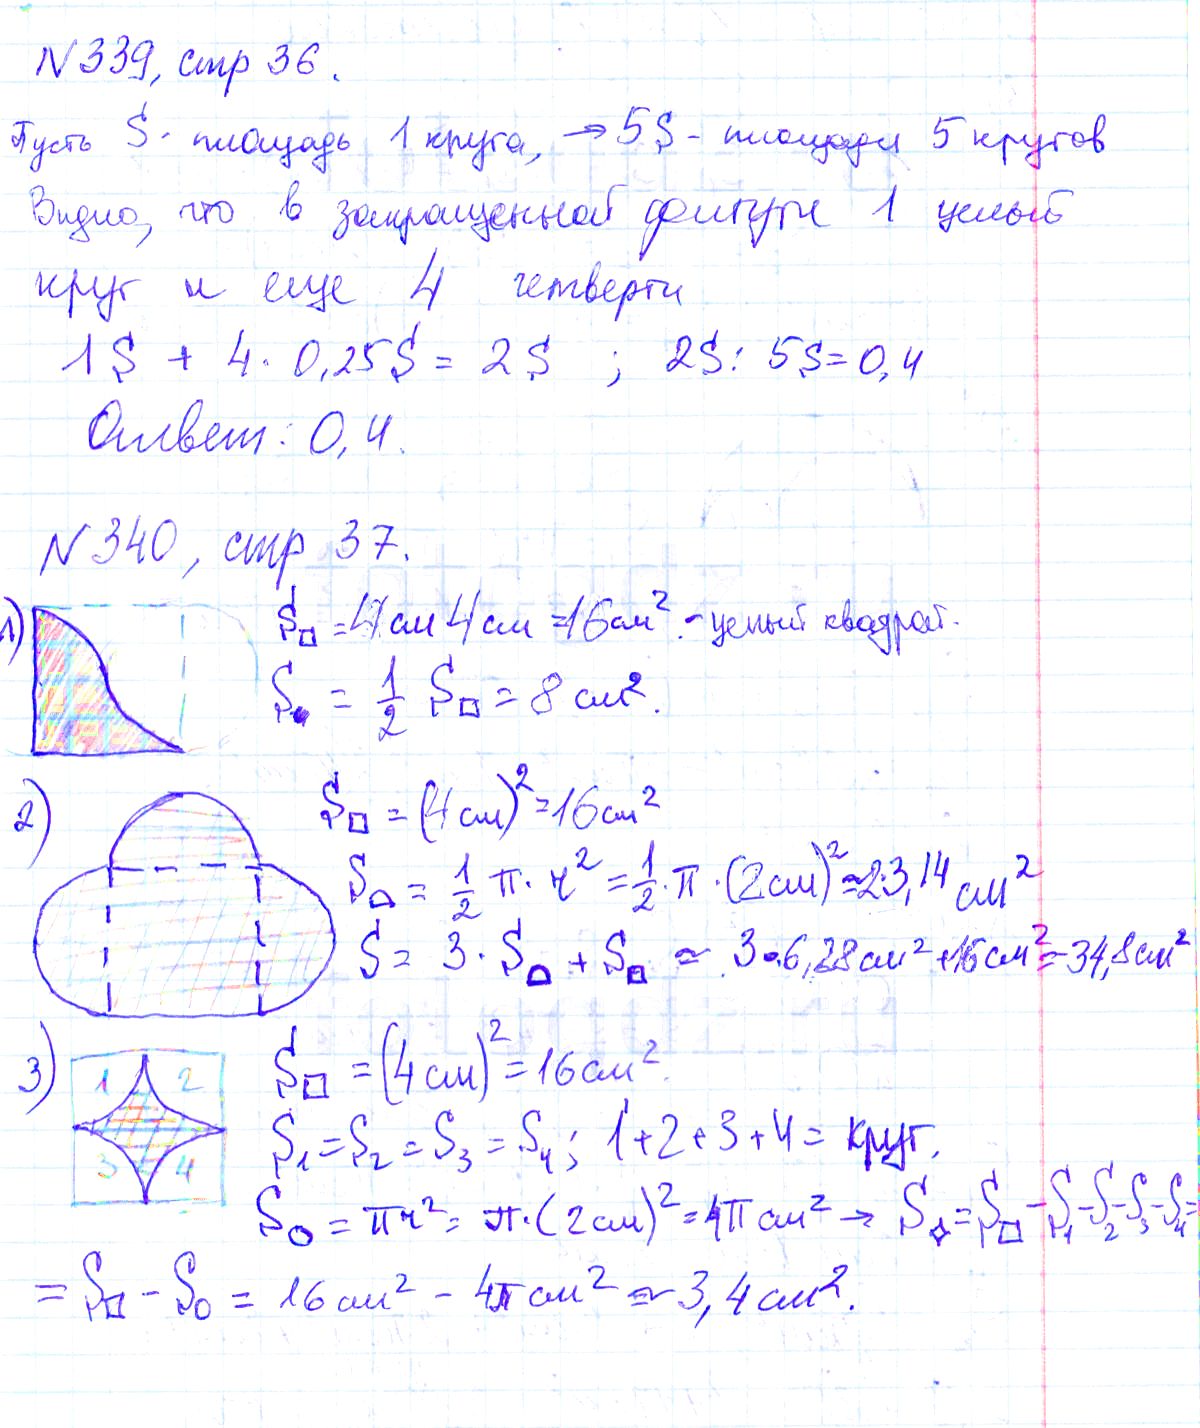 N 339, стр 36.
Пусть S - площадь 1 круга, → 5S - площади 5 кругов
Видно, что в закрашенной фигуре 1 целый
круг и еще 4 четверти
1S + 4 · 0,25S = 2S ; 2S : 5S = 0,4
Ответ: 0,4.
N 340, стр 37.
1) S□ = 4см 4см = 16см². - целый квадрат.
S = 1/2 S□ = 8 см².
2) S□ = (4см)² = 16см²
S⌓ = 1/2 π · r² = 1/2 · π · (2см)² ≈ 2·3,14 см²
S = 3 · S⌓ + S□ ≈ 3 · 6,28см² + 16см² ≈ 34,8см²
3) 1 2 3 4 S□ = (4см)² = 16см².
S₁ = S₂ = S₃ = S₄; 1+2+3+4 = круг.
S○ = πr² = π·(2см)² = 4π см² → S✧ = S□ - S₁ - S₂ - S₃ - S₄ =
= S□ - S○ = 16см² - 4π см² ≈ 3,4см².